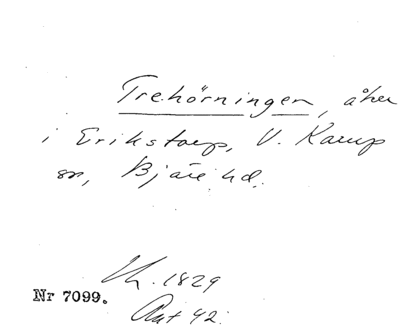 Trehörningen, åker
i Erikstorp, V. Karup
sn, Bjäre hd.
Lh. 1829
Nr 7099.
Akt 42.